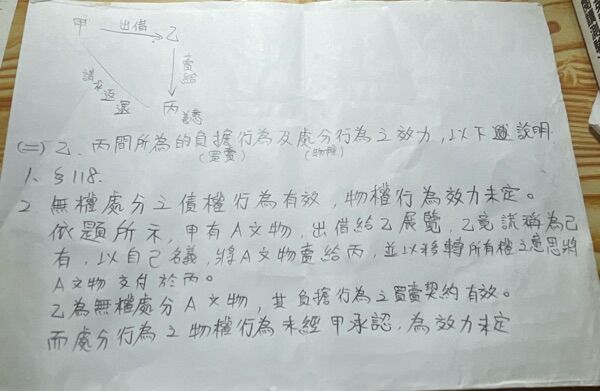 甲 出借 乙
賣給
請求返還
丙 善意
(二) 乙、丙間所為的負擔行為及處分行為之效力,以下述說明
(買賣) (物權)
1. §118.
2. 無權處分之債權行為有效,物權行為效力未定。
依題所示,甲有A文物,出借給乙展覽,乙竟謊稱為己
有,以自己名義,將A文物賣給丙,並以移轉所有權之意思將
A文物交付於丙。
乙為無權處分A文物,其負擔行為之買賣契約有效。
而處分行為之物權行為未經甲承認,為效力未定